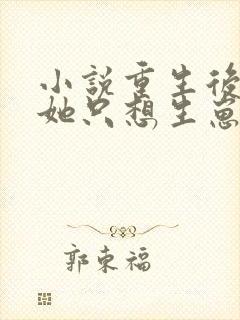 小說重生後
她只想生崽
郭東福